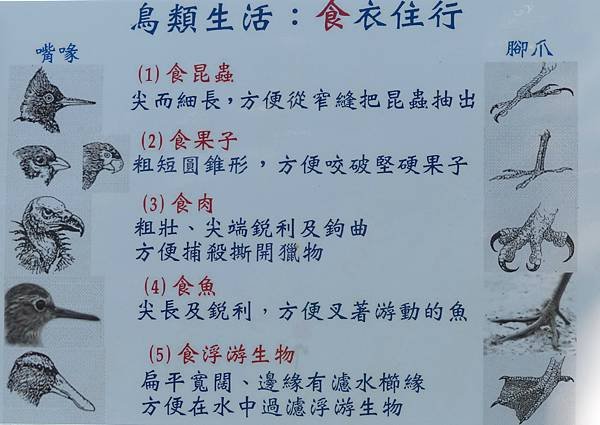 鳥類生活：食衣住行
嘴喙
腳爪
(1) 食昆蟲
尖而細長，方便從窄縫把昆蟲抽出
(2) 食果子
粗短圓錐形，方便咬破堅硬果子
(3) 食肉
粗壯、尖端銳利及鉤曲
方便捕殺撕開獵物
(4) 食魚
尖長及銳利，方便叉著游動的魚
(5) 食浮游生物
扁平寬闊、邊緣有濾水櫛緣
方便在水中過濾浮游生物